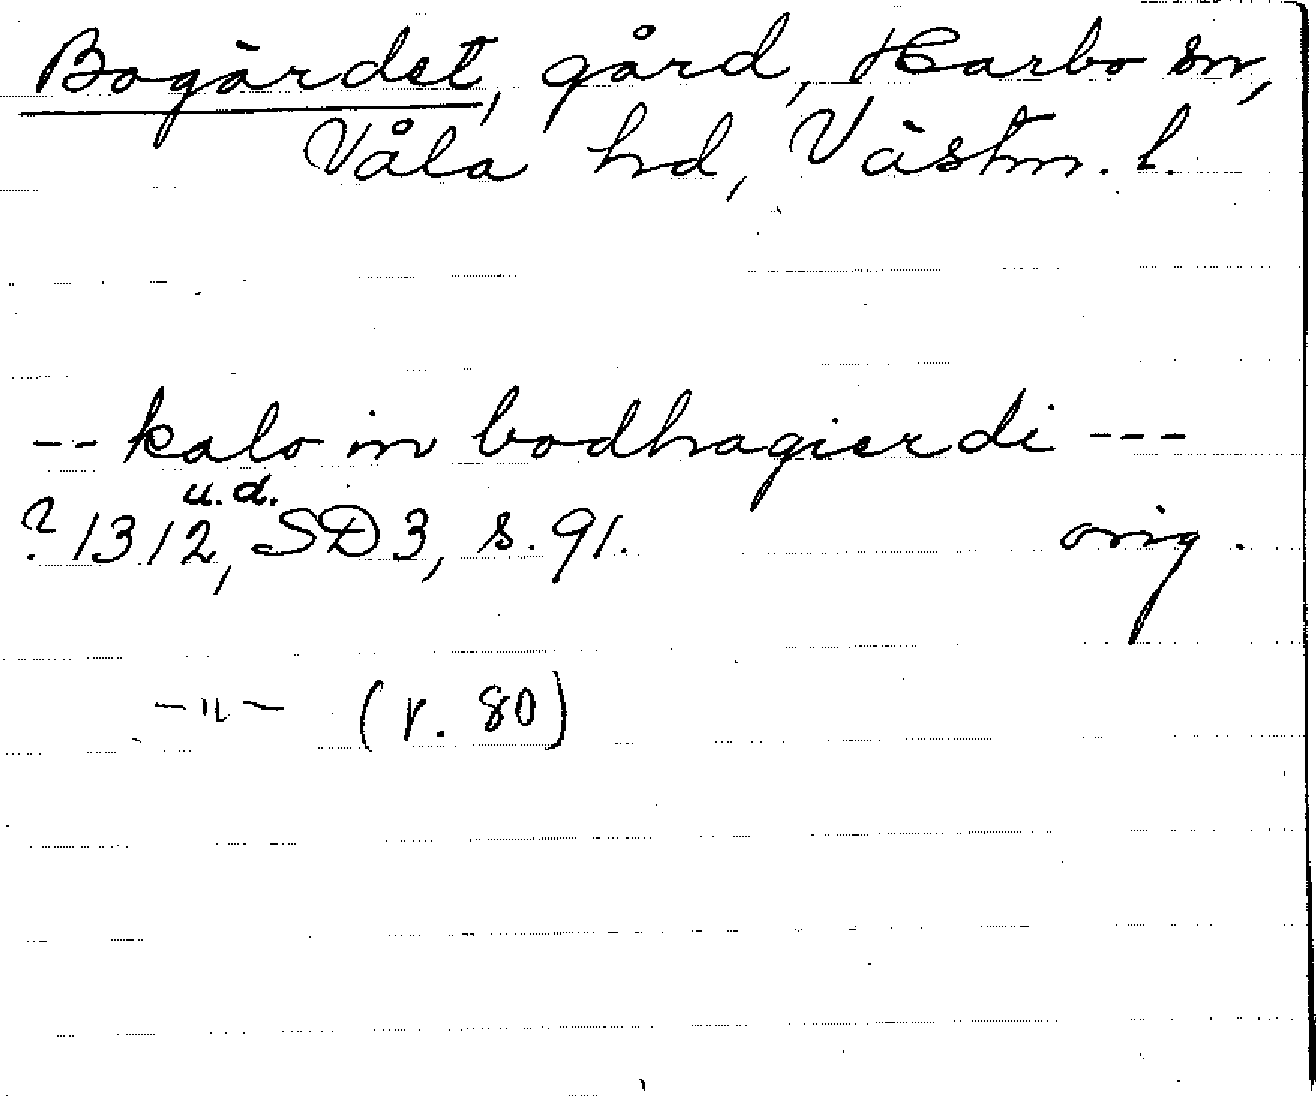 Bogärdet, gård, Harbo sn,
Våla hd, Västm. l.
-- kalo in bodhagierdi ---
u.d.
? 1312, SD3, s. 91. orig.
-"- (r. 80)